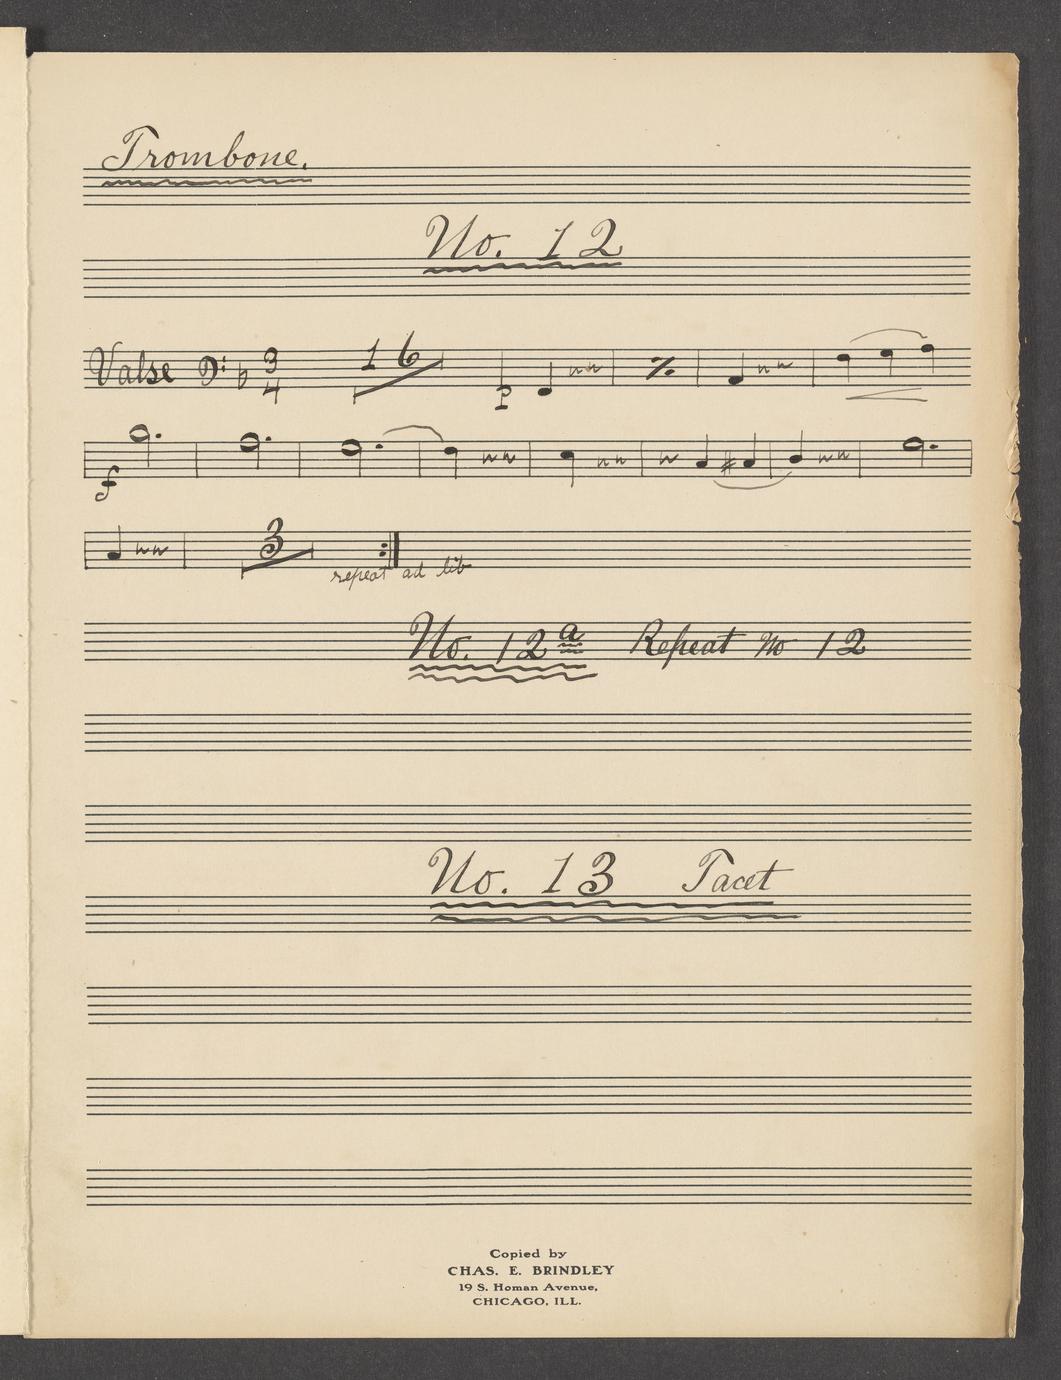 Trombone.
No. 12
Valse 3 4 16
P
f
3
repeat ad lib
No. 12a Repeat No 12
No. 13 Tacet
Copied by
CHAS. E. BRINDLEY
19 S. Homan Avenue,
CHICAGO, ILL.